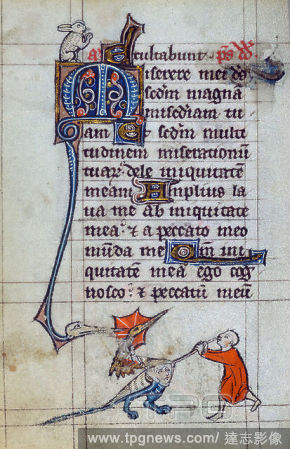 exultabunt. ps. L.
Miserere mei deus
secdm magnā
misediam tu
am Et sedm multi
tudinem miserationū
tuaꝝ: dele iniquitate
meam Amplius la
va me ab iniquitate
mea: & a peccato meo
munda me Qm ini
quitatē meā ego cog
nosco: & peccatum meū
www.tpgnews.com / 達志影像